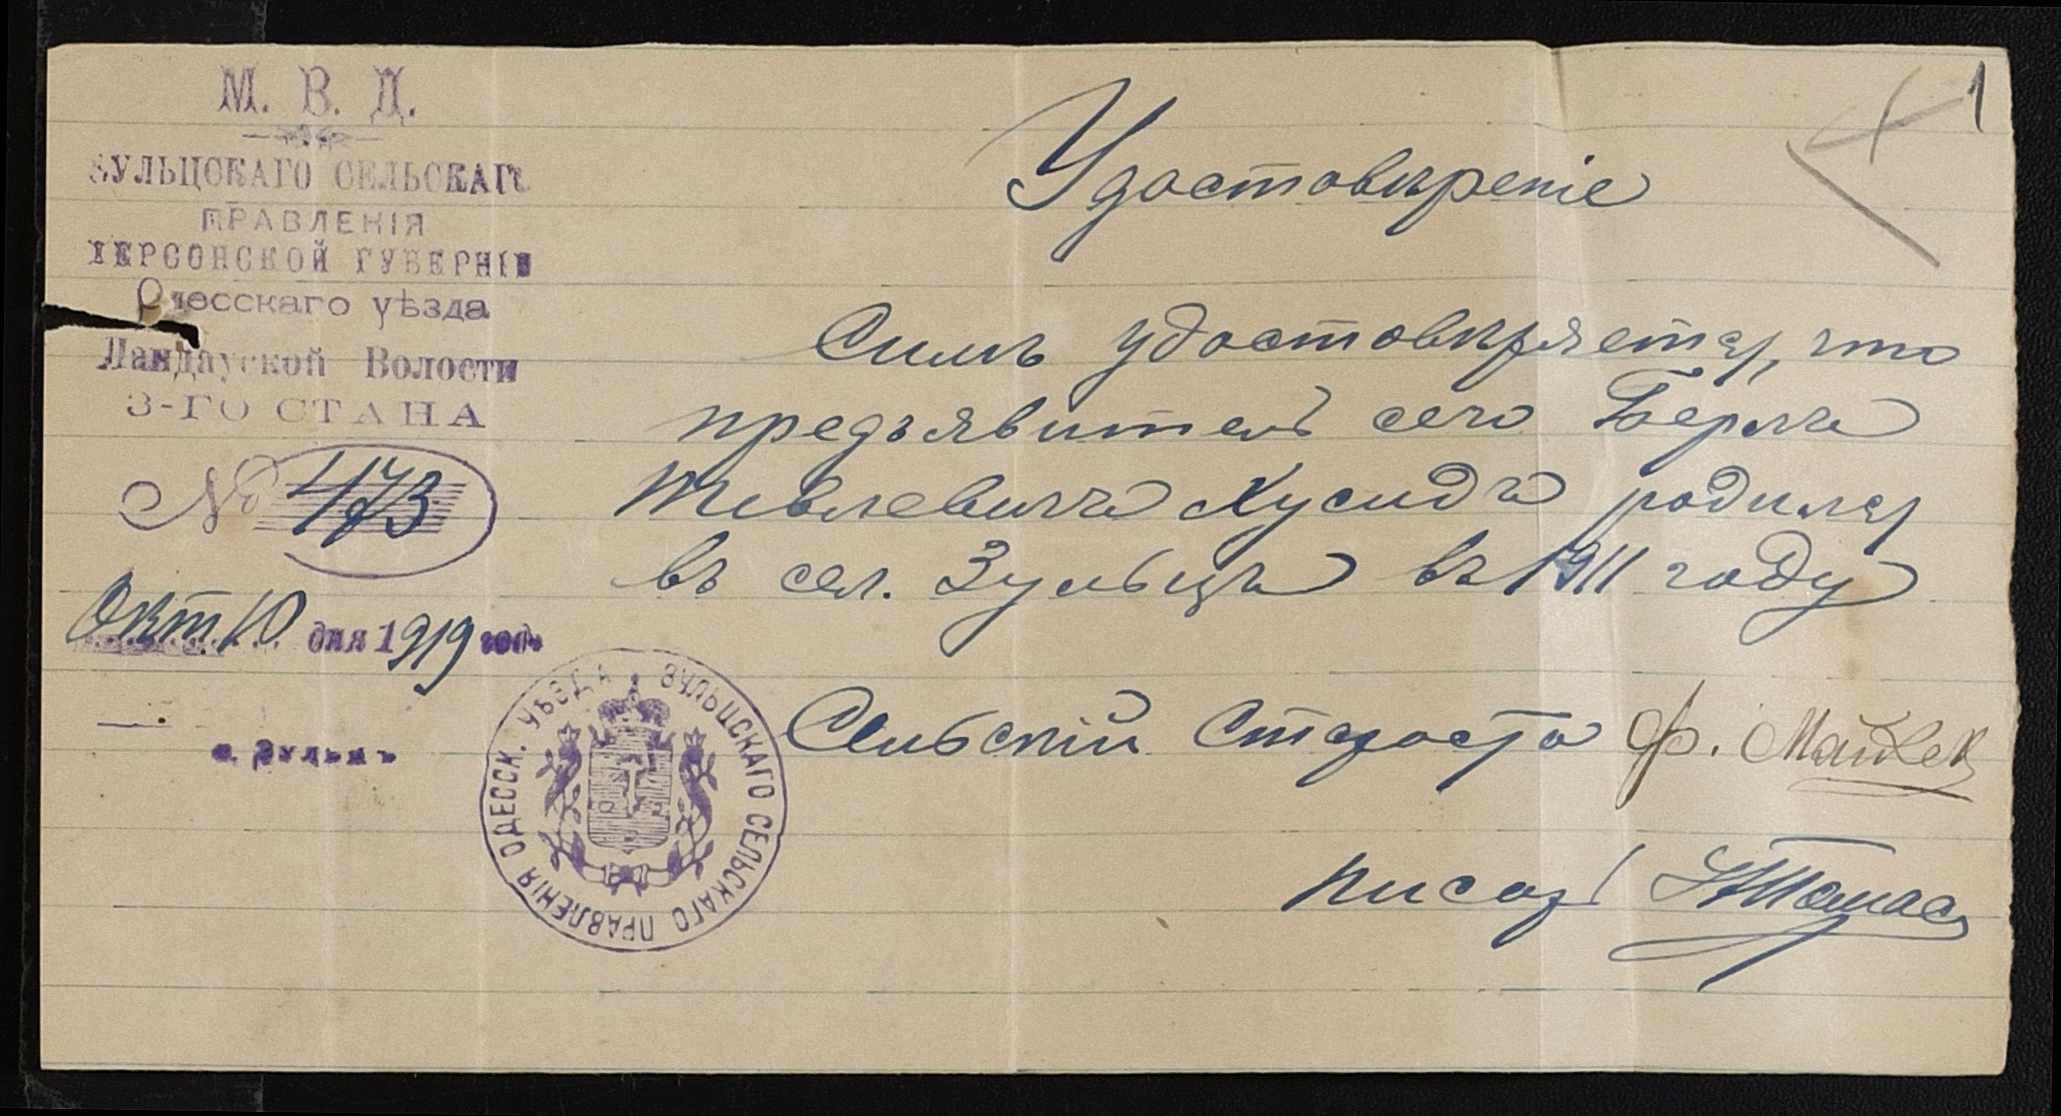 М. В. Д.
ЗУЛЬЦСКАГО СЕЛЬСКАГО
ПРАВЛЕНІЯ
ХЕРСОНСКОЙ ГУБЕРНІИ
Одесскаго уѣзда
Ландауской Волости
3-ГО СТАНА
№ 473
Окт. 10 дня 1919 года
с. Зульцъ
1
Удостовѣреніе
Симъ удостовѣряется, что
предъявитель сего Берка
Хусидъ родился
въ сел. Зульцъ въ 1911 году
Сельскій Староста Ф. Майзек
писарь Томас
ЗУЛЬЦСКАГО СЕЛЬСКАГО ПРАВЛЕНІЯ ОДЕССК. УѢЗДА